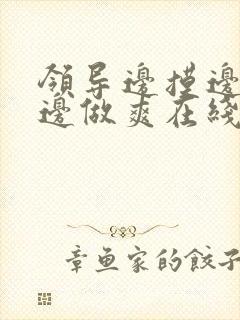 領导邊摸邊
邊做爽在綫
章魚家的餃子